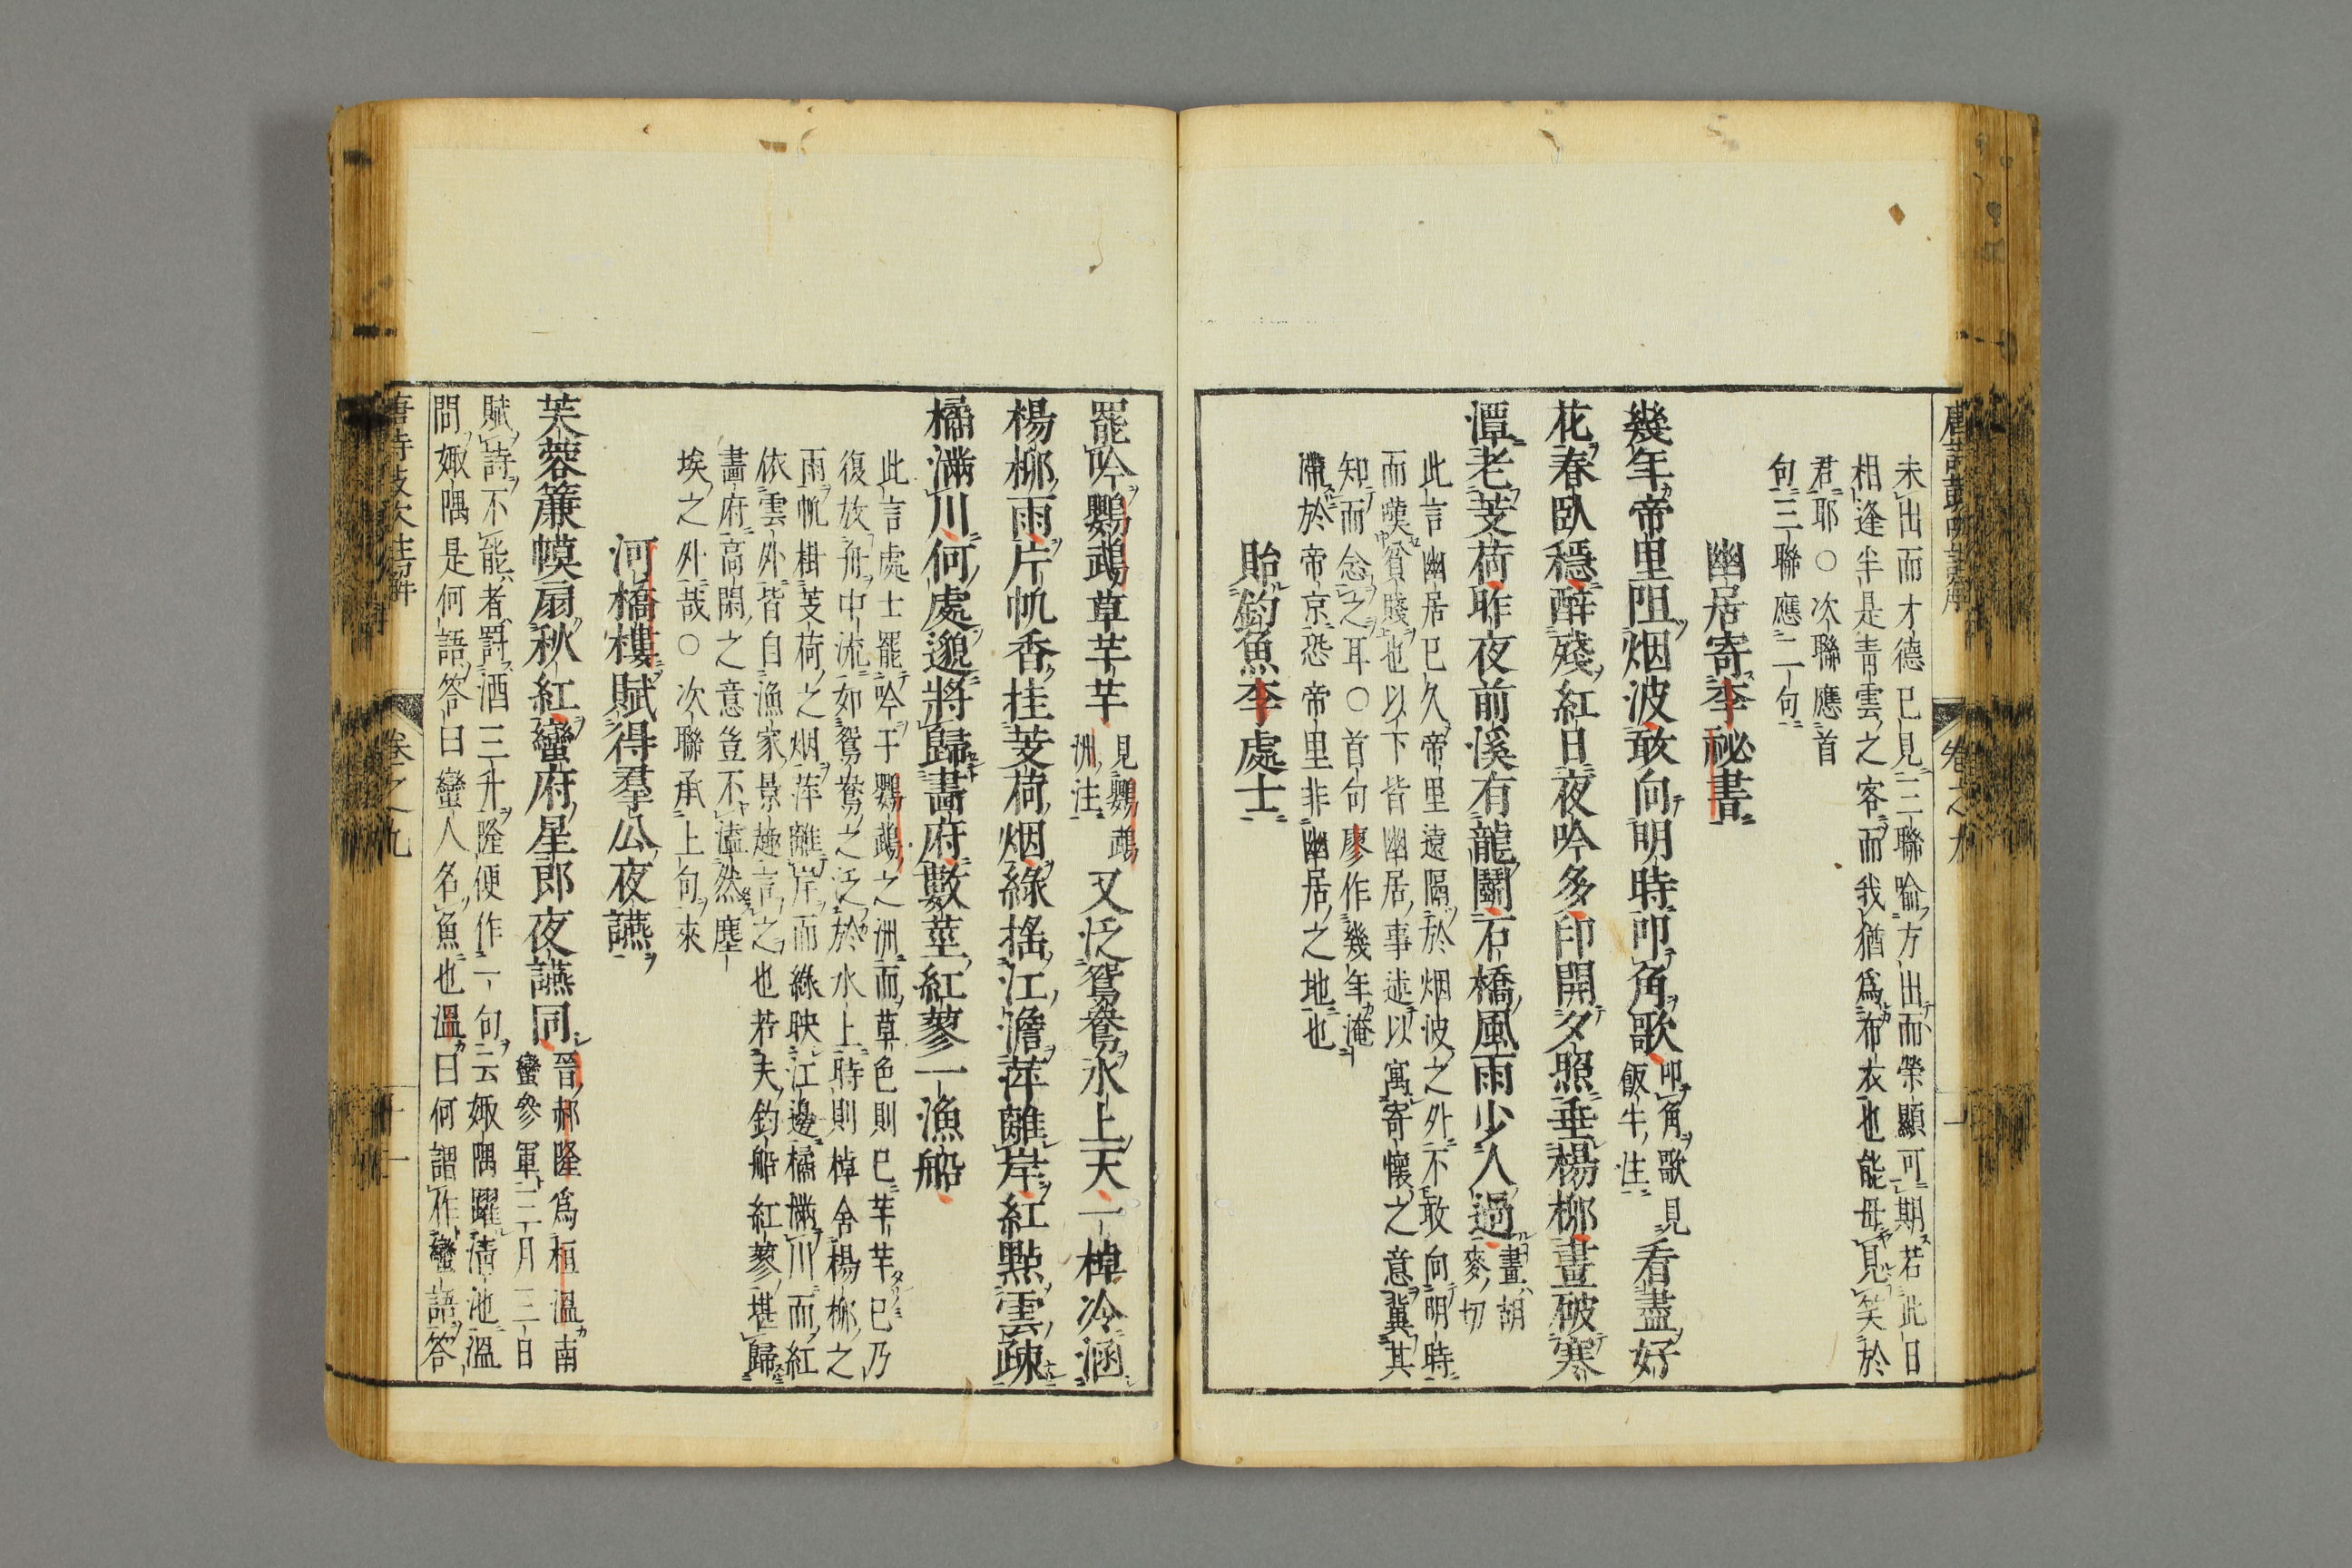 未出而才德已見三聯喻方出而榮顯可期若此日
相逢半是青雲之客而我猶為布衣也能毋見笑於
君耶○次聯應首
句三聯應二句
幽居寄李祕書
幾年帝里阻烟波敢向明時叩角歌
叩角歌見
飯牛注
看盡好
花春臥穩醉殘紅日夜吟多印開夕照垂楊柳畫破寒
潭老芰荷昨夜前溪有龍鬬石橋風雨少人過
畫胡
麥切
此言幽居已久帝里遠隔於烟波之外不敢向明時
而嘆貧賤也以下皆幽居事述以寓寄懷之意冀其
知而念之耳○首句廖作幾年淹
滯於帝京恐帝里非幽居之地也
貽釣魚李處士
罷吟鸚鵡草芊芊
見鸚鵡
洲注
又泛鴛鴦水上天一棹冷涵
楊柳雨片帆香挂芰荷烟綠搖江澹萍離岸紅點雲疎
橘滿川何處邈將歸畫府數莖紅蓼一漁船
此言處士罷吟于鸚鵡之洲而草色則已芊芊已乃
復放舟中流如鴛鴦之泛於水上時則棹舍楊柳之
雨帆掛芰荷之烟萍離岸而綠映江邊橘機川而紅
依雲外皆自漁家景趣言之也若夫釣船紅蓼堪歸
畫府高閑之意豈不溘然塵
埃之外哉○次聯承上句來
河橋樓賦得羣公夜讌
芙蓉簾幙扇秋紅蠻府星郎夜讌同
晉郝隆為桓溫南
蠻參軍三月三日
賦詩不能者罰酒三升隆便作一句云娵隅躍清池溫
問娵隅是何語答曰蠻人名魚也溫曰何謂作蠻語答
卷之九
十一